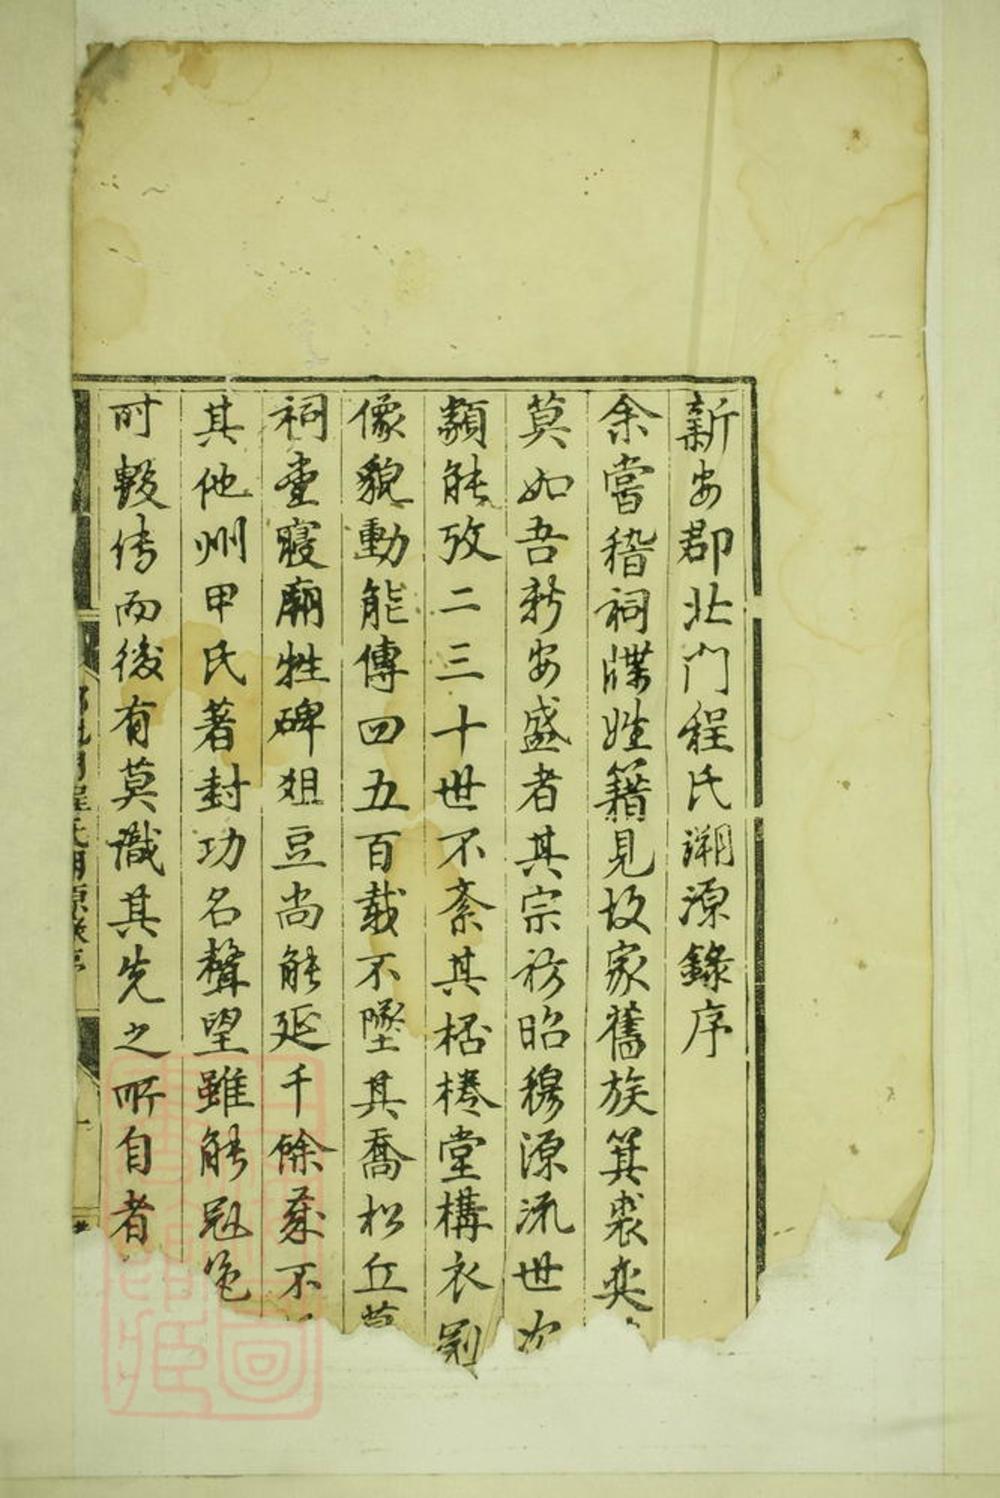 新安郡北門程氏溯源錄序
余嘗稽祠牒姓籍見故家舊族箕裘奕
莫如吾新安盛者其宗祊昭穆源流世次
類能攷二三十世不紊其桮棬堂構衣劍
像貌動能傳四五百載不墜其喬松丘
祠堂寢廟牲碑俎豆尚能延千餘歲不
其他州甲氏著封功名聲望雖能冠邑
时轂传而後有莫識其先之所自者